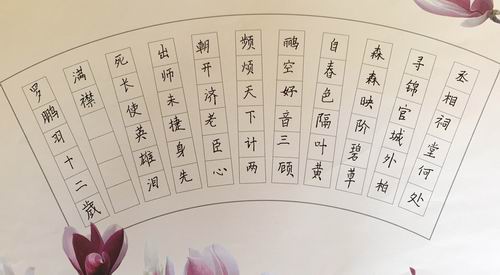 丞相祠堂何处
寻锦官城外柏
森森映阶碧草
自春色隔叶黄
鹂空好音三顾
频烦天下计两
朝开济老臣心
出师未捷身先
死长使英雄泪
满襟
罗鹏羽十二歲